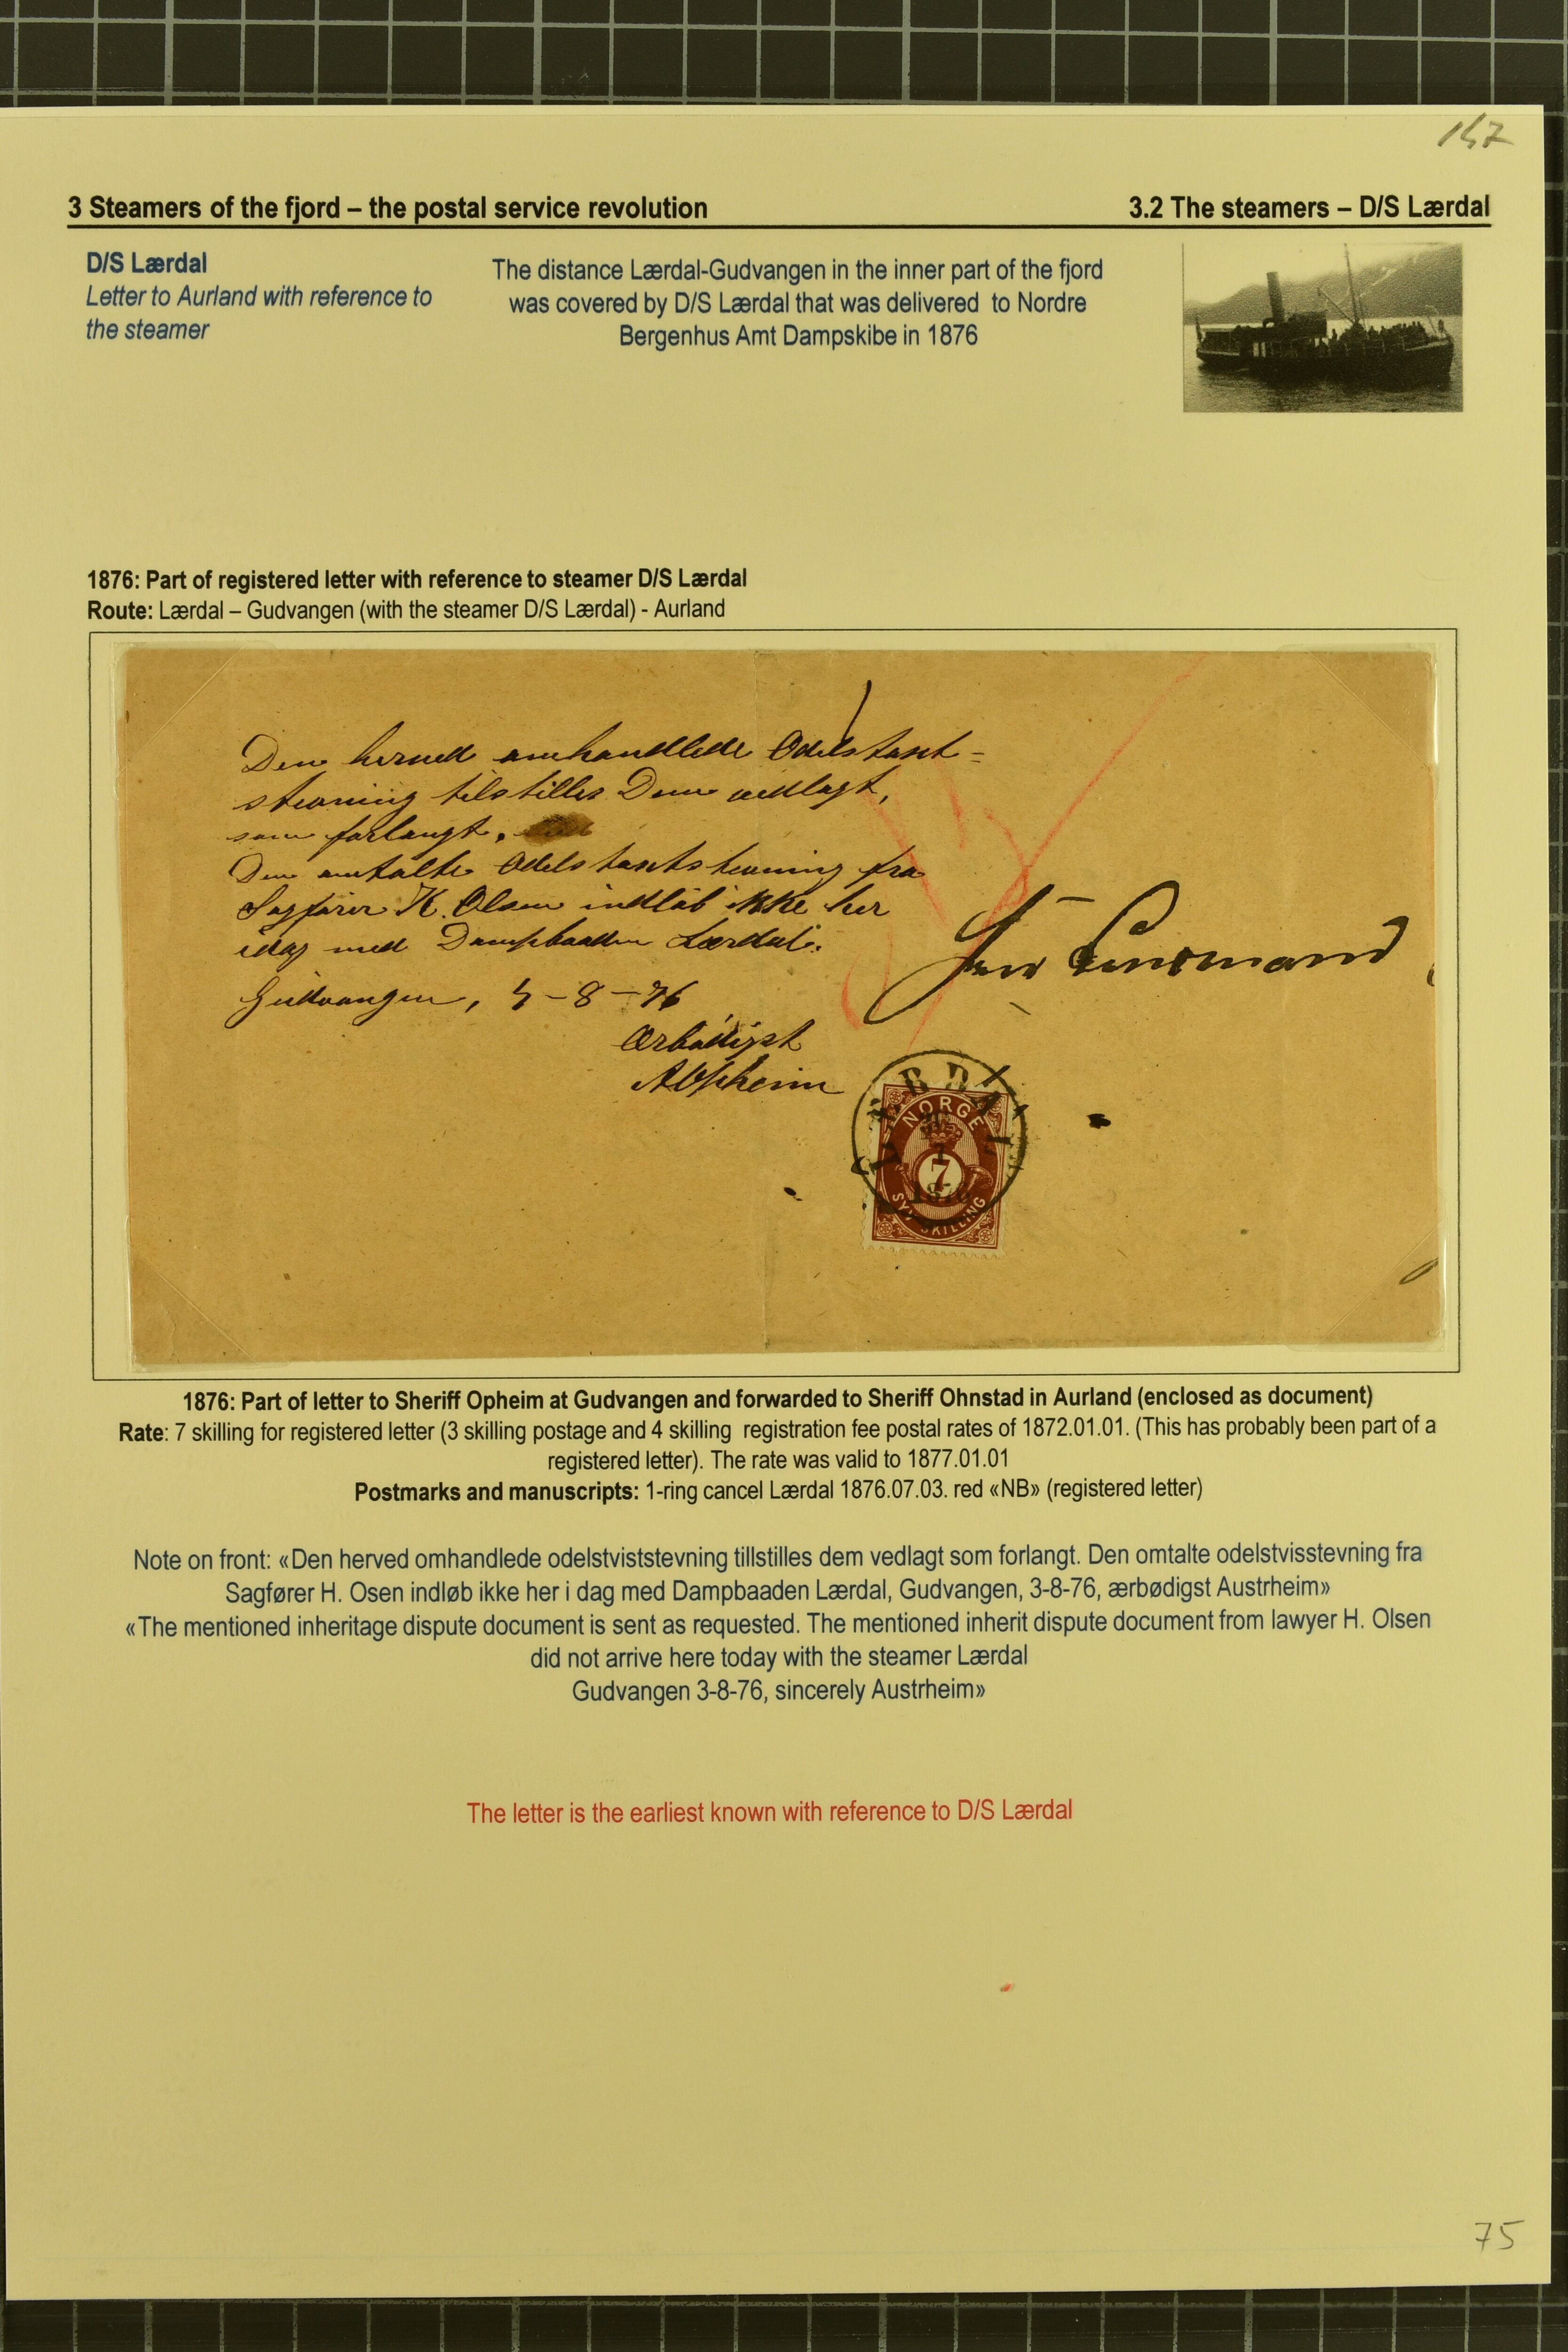 147
3 Steamers of the fjord – the postal service revolution 3.2 The steamers – D/S Lærdal
D/S Lærdal
Letter to Aurland with reference to
the steamer
The distance Lærdal-Gudvangen in the inner part of the fjord
was covered by D/S Lærdal that was delivered to Nordre
Bergenhus Amt Dampskibe in 1876
1876: Part of registered letter with reference to steamer D/S Lærdal
Route: Lærdal – Gudvangen (with the steamer D/S Lærdal) - Aurland
Den herved omhandlede Odelstaxt=
stevning tilstilles Dem vedlagt,
som forlangt.
Den omtalte Odelstaxtstevning fra
Sagfører H. Olsen indløb ikke her
idag med Dampbaaden Lærdal.
Gudvangen, 4-8-76
Ærbødigst
AOpheim
Lensmand
LÆRDAL
1876
NORGE
7
SYV SKILLING
1876: Part of letter to Sheriff Opheim at Gudvangen and forwarded to Sheriff Ohnstad in Aurland (enclosed as document)
Rate: 7 skilling for registered letter (3 skilling postage and 4 skilling registration fee postal rates of 1872.01.01. (This has probably been part of a
registered letter). The rate was valid to 1877.01.01
Postmarks and manuscripts: 1-ring cancel Lærdal 1876.07.03. red «NB» (registered letter)
Note on front: «Den herved omhandlede odelstviststevning tillstilles dem vedlagt som forlangt. Den omtalte odelstvisstevning fra
Sagfører H. Osen indløb ikke her i dag med Dampbaaden Lærdal, Gudvangen, 3-8-76, ærbødigst Austrheim»
«The mentioned inheritage dispute document is sent as requested. The mentioned inherit dispute document from lawyer H. Olsen
did not arrive here today with the steamer Lærdal
Gudvangen 3-8-76, sincerely Austrheim»
The letter is the earliest known with reference to D/S Lærdal
75